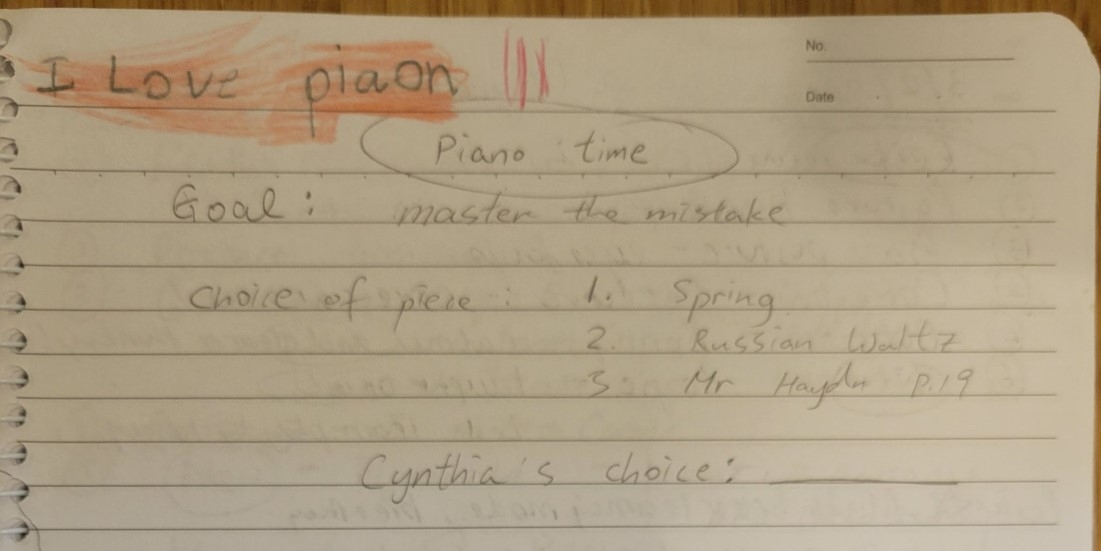 I Love piaon
No.
Date
Piano time
Goal: master the mistake
Choice of piece: 1. Spring
2. Russian Waltz
3. Mr Haydn p.19
Cynthia's choice: